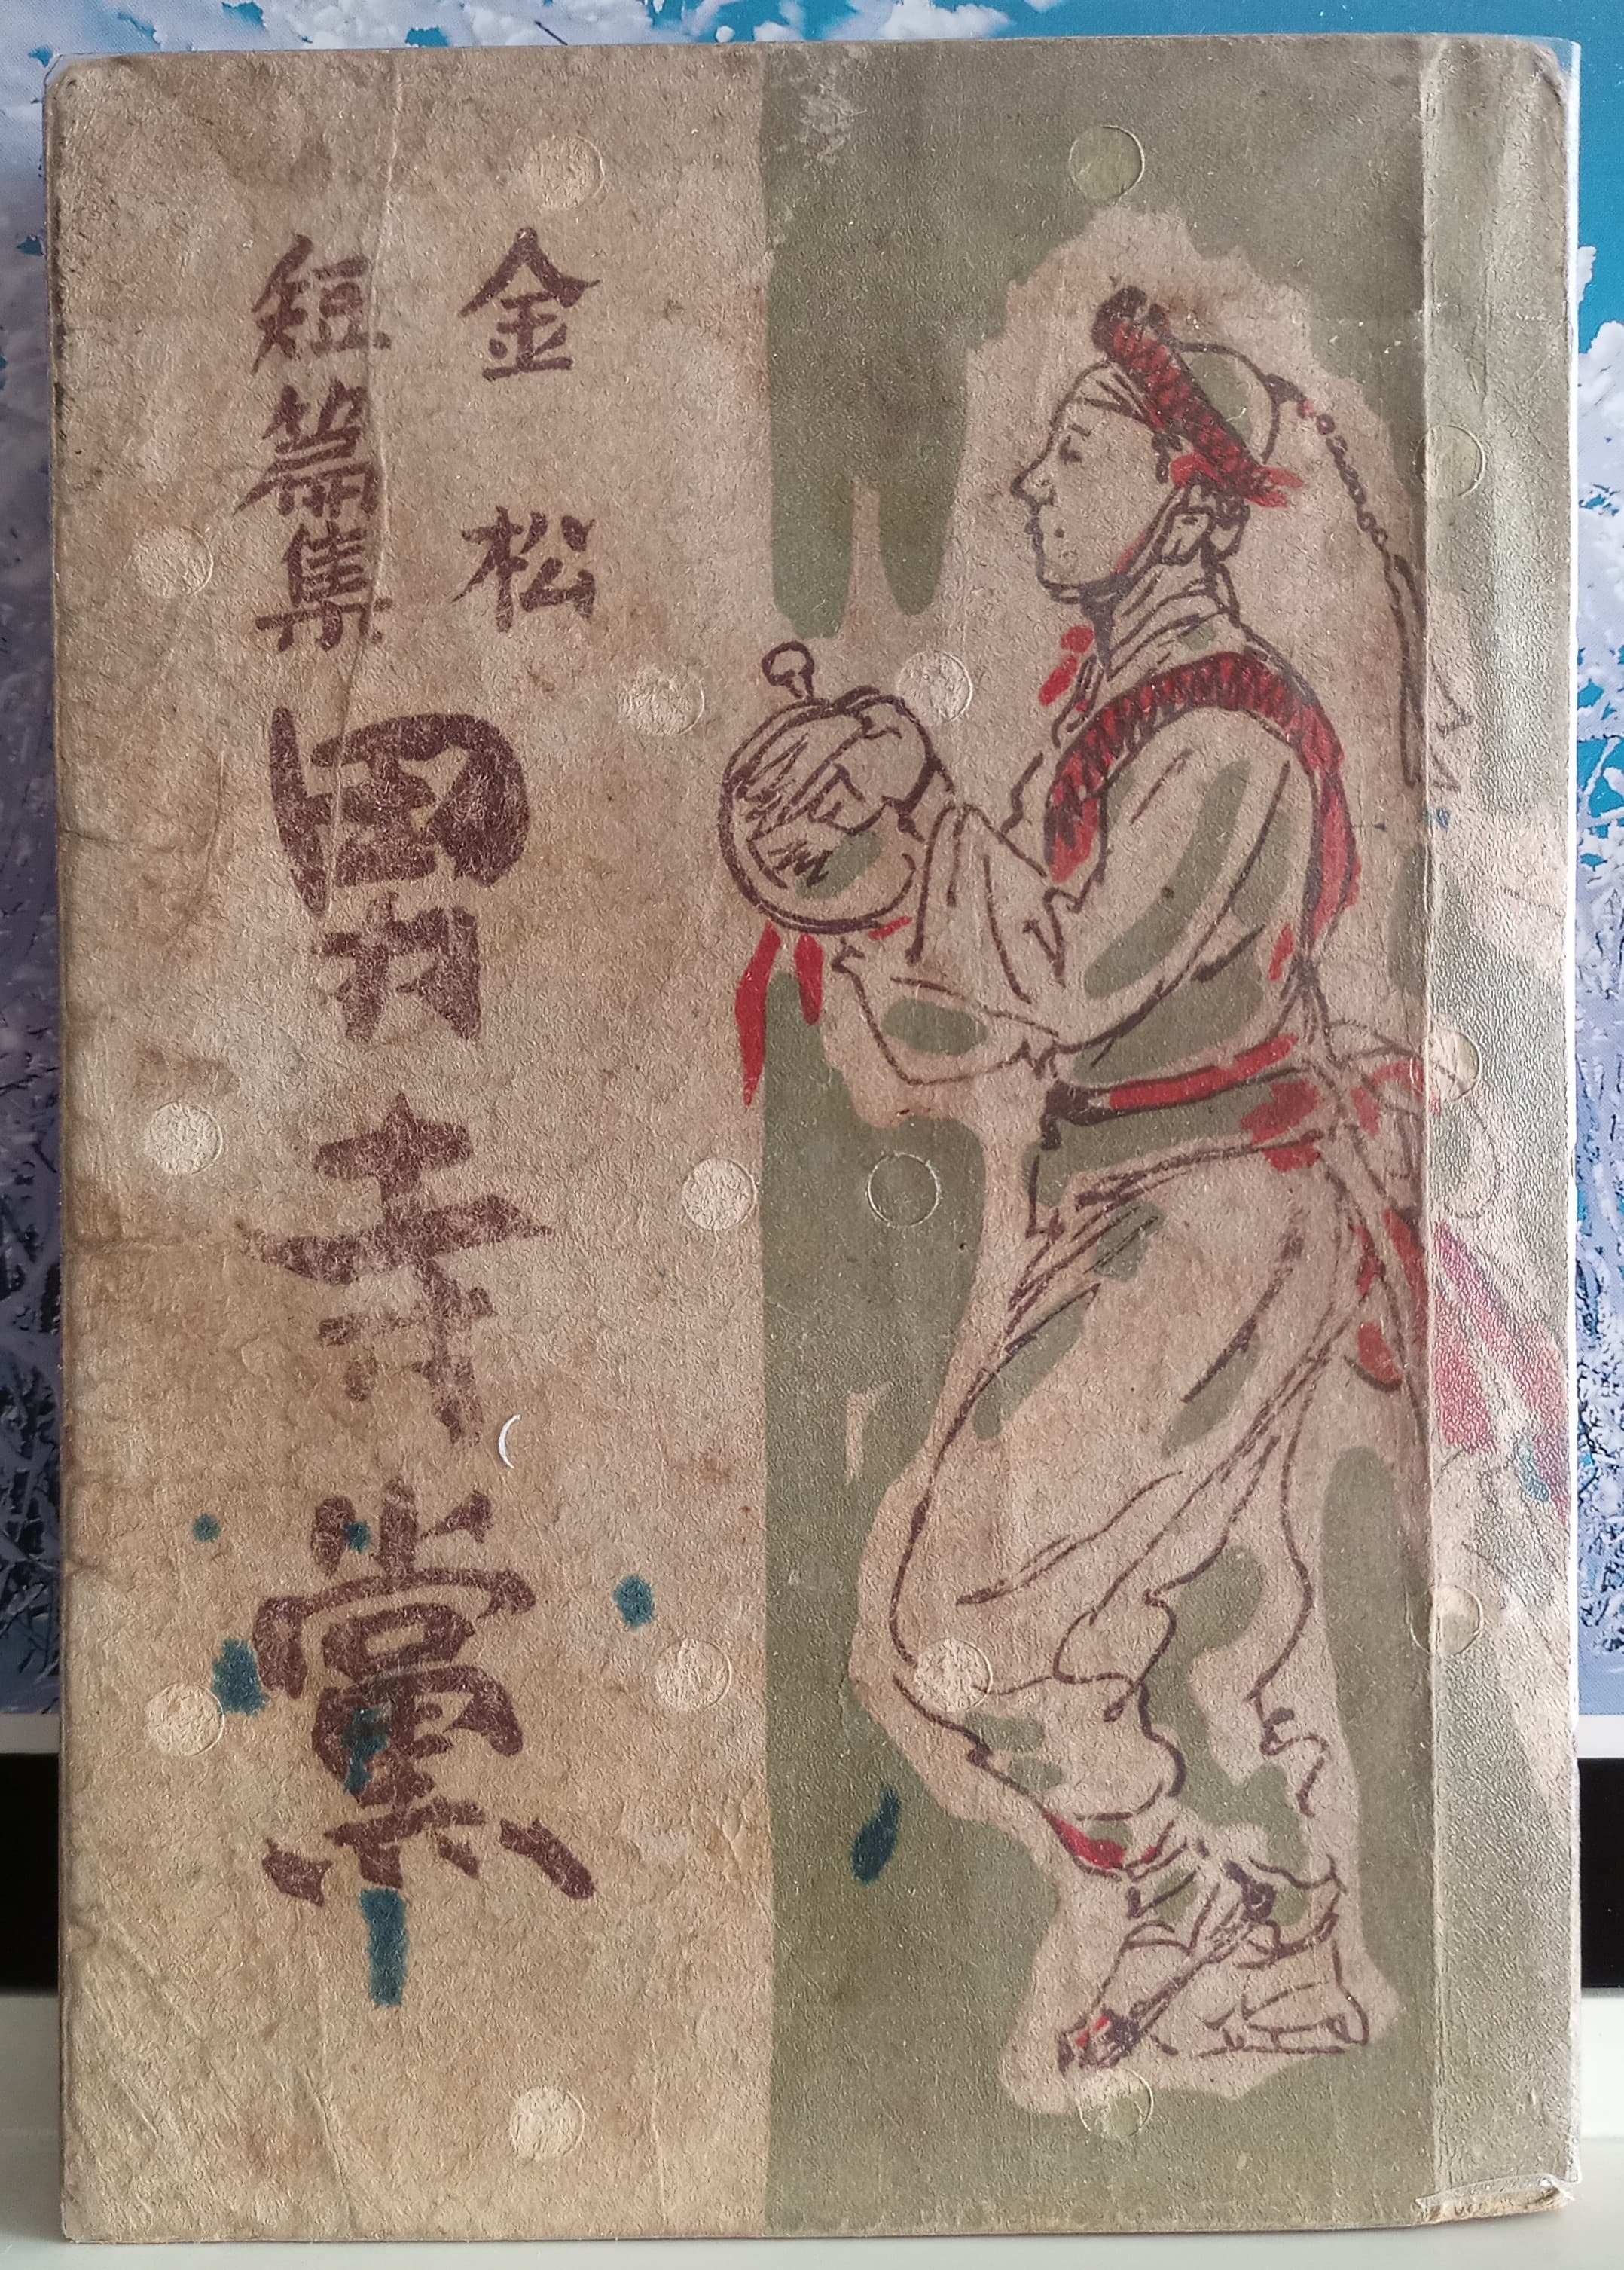 金松
短篇集
男寺黨